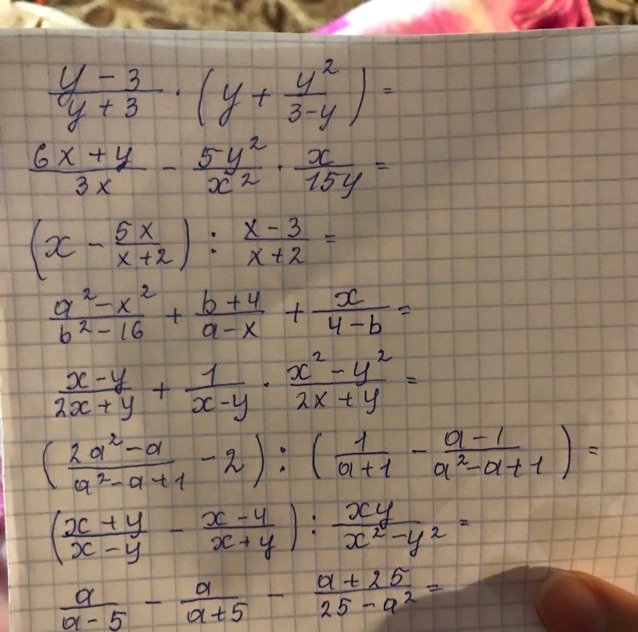 (y − 3)/(y + 3) · (y + y²/(3−y)) =
(6x + y)/(3x) − 5y²/x² · x/(15y) =
(x − 5x/(x+2)) : (x−3)/(x+2) =
(a²−x²)/(b²−16) + (b+4)/(a−x) + x/(4−b) =
(x−y)/(2x+y) + 1/(x−y) · (x²−y²)/(2x+y) =
((2a²−a)/(a²−a+1) − 2) : (1/(a+1) − (a−1)/(a²−a+1)) =
((x+y)/(x−y) − (x−y)/(x+y)) : xy/(x²−y²) =
a/(a−5) − a/(a+5) − (a+25)/(25−a²) =